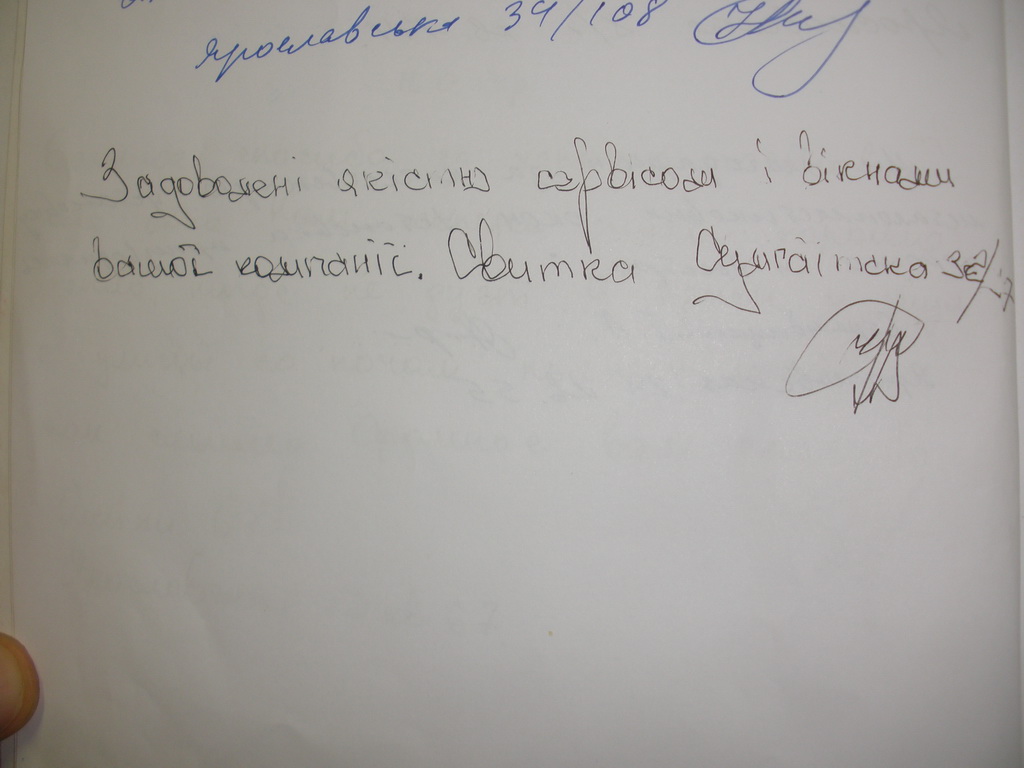 Ярославська 34/108
Задоволені якістю сервісом і вікнами
вашої компанії. Свитка Сумгаїтська